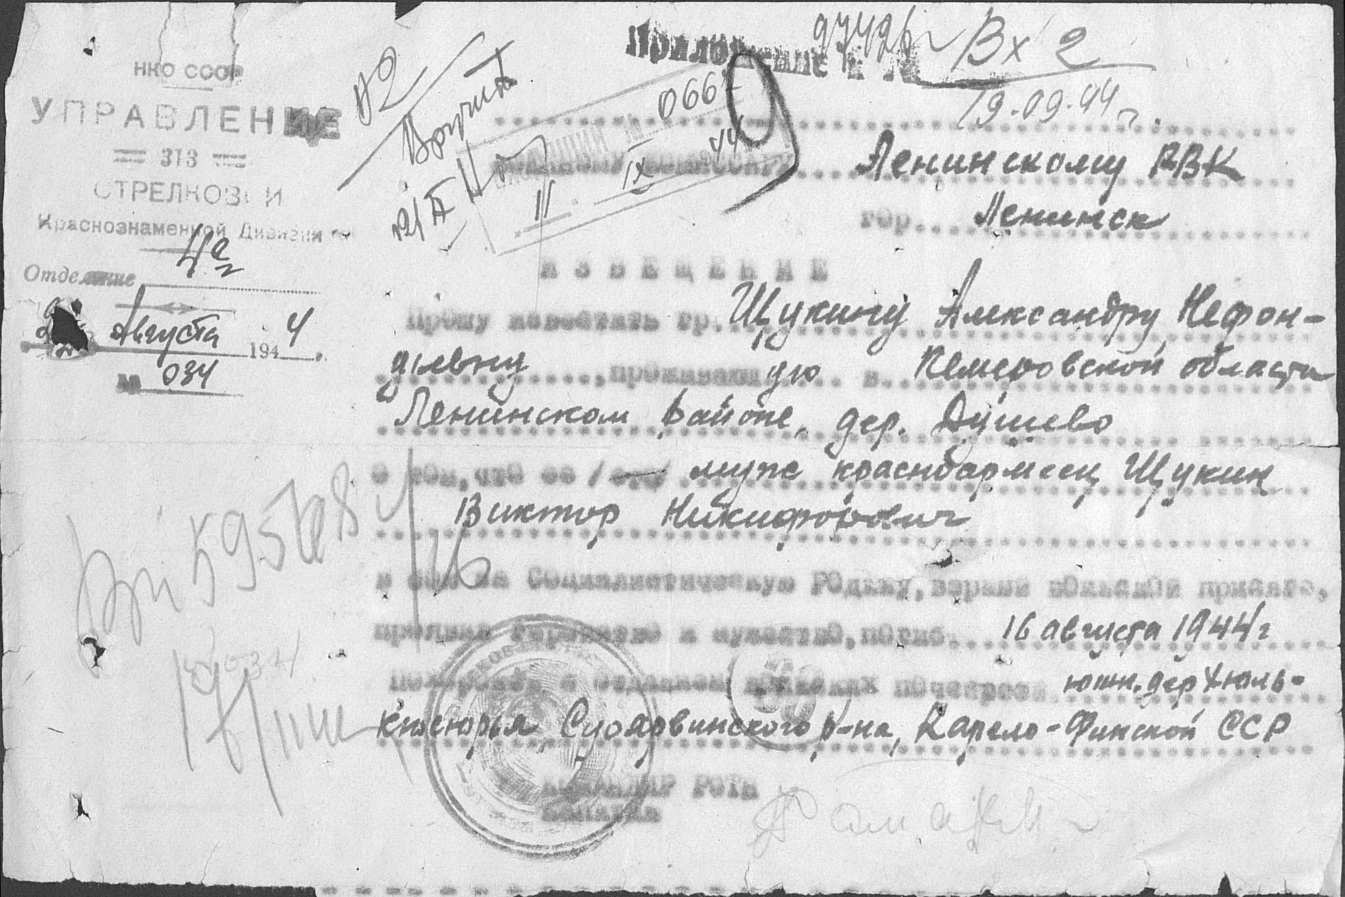 Приложение к №
97426 Вх 2
19.09.44 г.
НКО СССР
УПРАВЛЕНИЕ
313
СТРЕЛКОВОЙ
Краснознаменной Дивизии
Отделение 4е
августа 1944.
№ 034
02
Вручить
066
11 IX 44
Ленинскому РВК
гор. Ленинск
ИЗВЕЩЕНИЕ
Прошу известить гр. Щукину Александру Нефон-
дьевну, проживающую в Кемеровской области
Ленинском районе, дер. Душево
о том, что ее / его / муж красноармеец Щукин
Виктор Никифорович
в бою за Социалистическую Родину, верный воинской присяге,
проявив геройство и мужество, погиб 16 августа 1944 г
Похоронен с отданием воинских почестей южн. дер Хюль-
Суоярвинского р-на, Карело-Финской ССР
КОМАНДИР РОТЫ